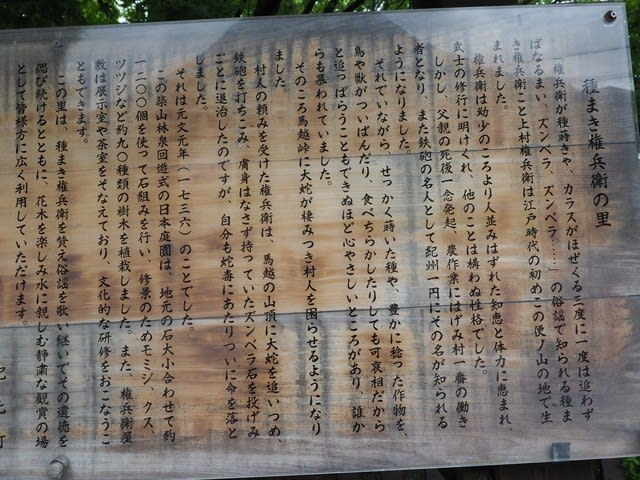 種まき権兵衛の里
「権兵衛が種蒔きゃ、カラスがほぜくる三度に一度は追わず
ばなるまい、ズンベラ、ズンベラ……」の俗謡で知られる種ま
き権兵衛こと上村権兵衛は江戸時代の初めこの便ノ山の地で生
まれました。
権兵衛は幼少のころより人並みはずれた知恵と体力に恵まれ、
武士の修行に明けくれ、他のことは構わぬ性格でした。
しかし、父親の死後一念発起、農作業にはげみ村一番の働き
者となり、また鉄砲の名人として紀州一円にその名が知られる
ようになりました。
それていながら、せっかく蒔いた種や、豊かに稔った作物を、
鳥や獣がついばんだり、食べちらかしたりしても可哀相だから
と追っぱらうこともできぬほど心やさしいところがあり、誰か
らも慕われていました。
そのころ馬越峠に大蛇が棲みつき村人を困らせるようになり
ました。
村人の頼みを受けた権兵衛は、馬越の山頂に大蛇を追いつめ、
鉄砲を打ちこみ、膚身はなさず持っていたズンベラ石を投げみ
ごとに退治したのですが、自分も蛇毒にあたりついに命を落と
しました。
それは元文元年(一七三六)のことでした。
この築山林泉回遊式の日本庭園は、地元の石大小合わせて約
一二〇〇個を使って石組みを行い、修景のためモミジ、クス、
ツツジなど約九〇種類の樹木を植栽しました。また、権兵衛屋
敷は展示室や茶室をそなえており、文化的な研修をおこなうこ
ともできます。
この里は、種まき権兵衛を賛え俗謡を歌い継いでその遺徳を
偲び続けるとともに、花木を楽しみ水に親しむ静粛な観賞の場
として皆様方に広く利用していただけます。